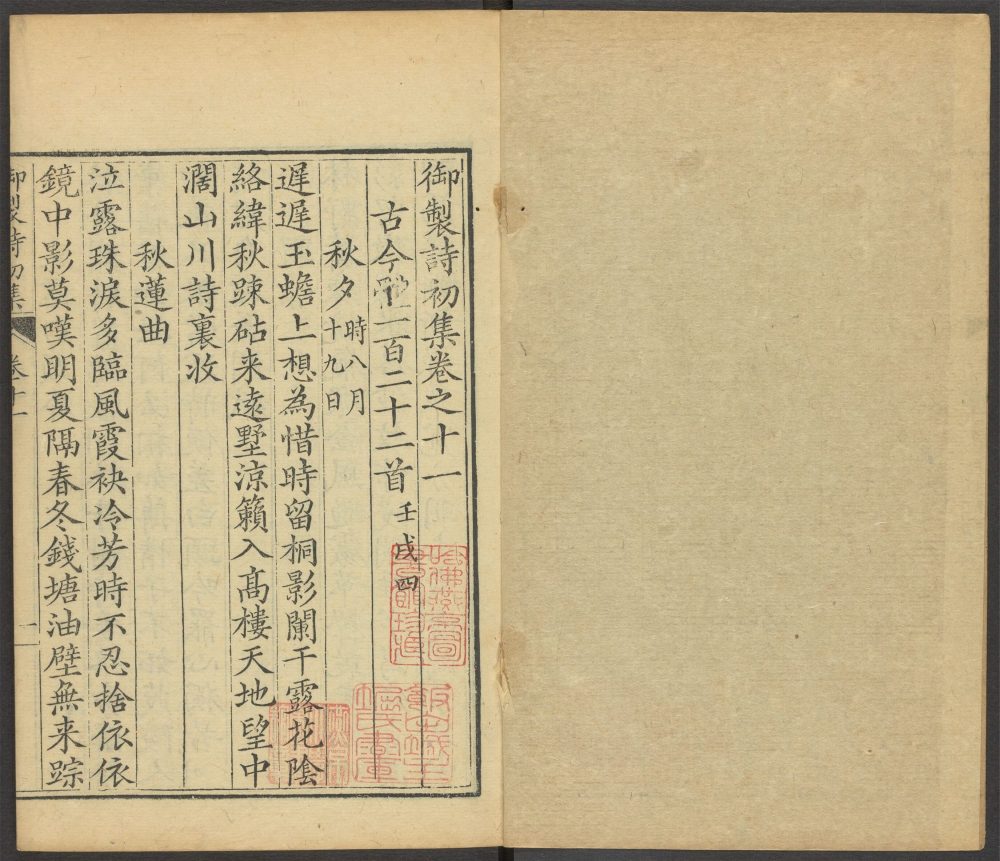 御製詩初集卷之十一
古今體一百二十二首壬戌四
秋夕時八月十九日
遲遲玉蟾上想為惜時留桐影闌干露花陰
絡緯秋踈砧来逺墅涼籟入髙樓天地望中
濶山川詩裏收
秋蓮曲
泣露珠淚多臨風霞袂冷芳時不忍捨依依
鏡中影莫嘆明夏隔春冬錢塘油壁無来踪
御製詩初集 卷十一 一
哈佛燕京圖書館珍藏